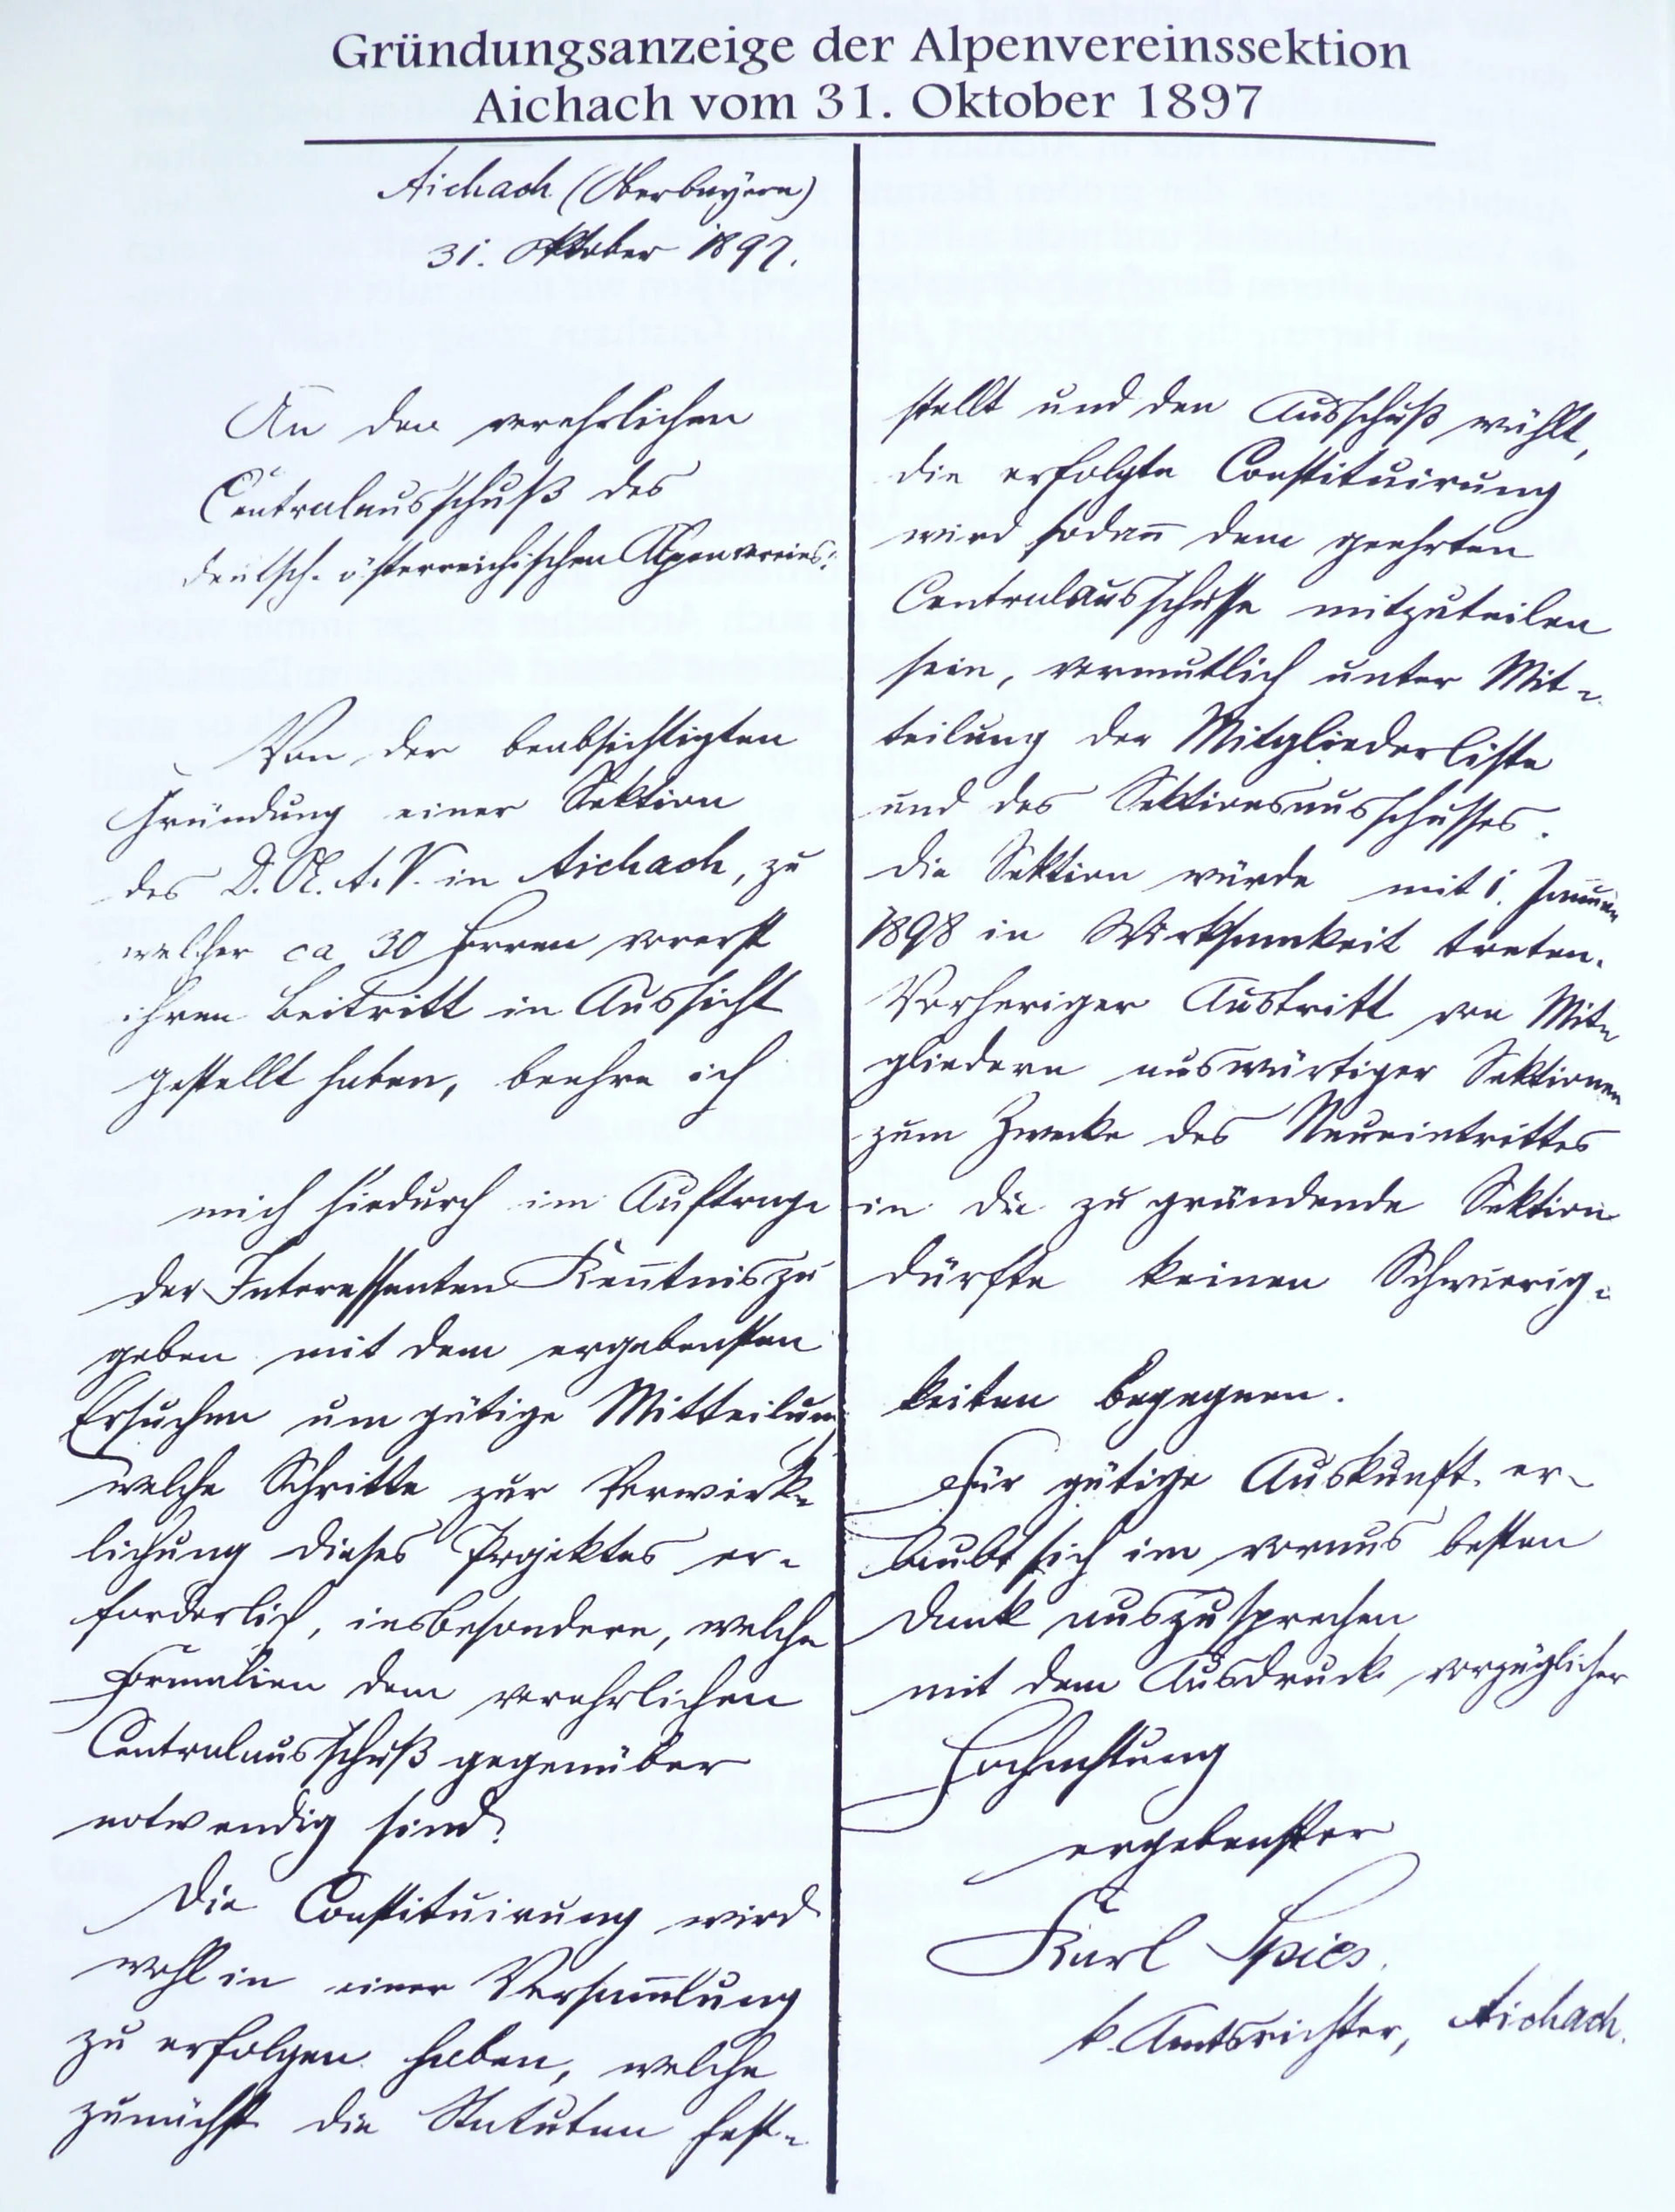 Gründungsanzeige der Alpenvereinssektion
Aichach vom 31. Oktober 1897
Aichach (Oberbayern)
31. Oktober 1897.
An den verehrlichen
Centralausschuß des
deutsch. österreichischen Alpenvereins:
Von der beabsichtigten
Gründung einer Sektion
des D. Ö. A. V. in Aichach, zu
welcher ca 30 Herren vorerst
ihren Beitritt in Aussicht
gestellt haben, beehre ich
mich hiedurch im Auftrage
der Interessenten Kenntnis zu
geben mit dem ergebensten
Ersuchen um gütige Mitteilung
welche Schritte zur Verwirk-
lichung dieses Projektes er-
forderlich, insbesondere, welche
Formalien dem verehrlichen
Centralausschuß gegenüber
notwendig sind?
Die Constituirung wird
wohl in einer Versam̅lung
zu erfolgen haben, welche
zunächst die Statuten fest-
stellt und den Ausschuß wählt,
die erfolgte Constituirung
wird sodan̅ dem geehrten
Centralausschusse mitzuteilen
sein, vermutlich unter Mit-
teilung der Mitgliederliste
und des Sektionsausschusses.
Die Sektion würde mit 1. Januar
1898 in Wirksamkeit treten.
Vorheriger Austritt von Mit-
gliedern auswärtiger Sektionen
zum Zwecke des Neueintrittes
in die zu gründende Sektion
dürfte keinen Schwierig-
keiten begegnen.
Für gütige Auskunft er-
laubt sich im voraus besten
Dank auszusprechen
mit dem Ausdruck vorzüglicher
Hochachtung
ergebenster
Karl Spies.
k. Amtsrichter, Aichach.